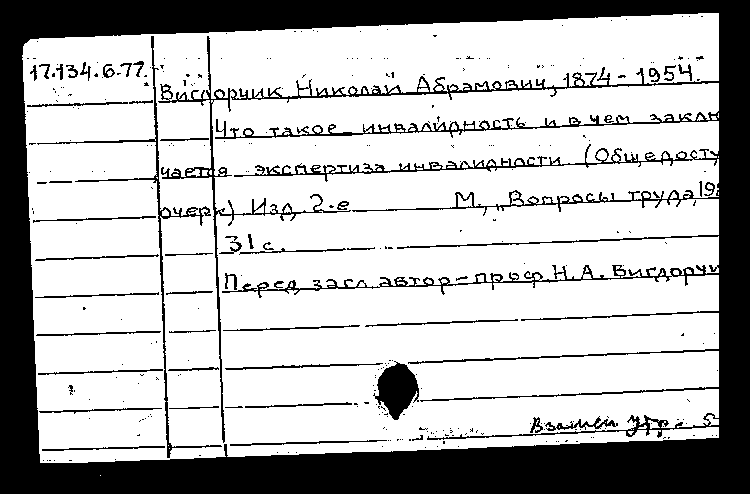 17.134.6.77.
Вигдорчик, Николай Абрамович, 1874 - 1954.
Что такое инвалидность и в чем заклю
чается экспертиза инвалидности (Общедосту
очерк) Изд. 2-е М., "Вопросы труда, 19
31 с.
Перед загл. автор - проф. Н. А. Вигдорчи
Взамен утр. 5